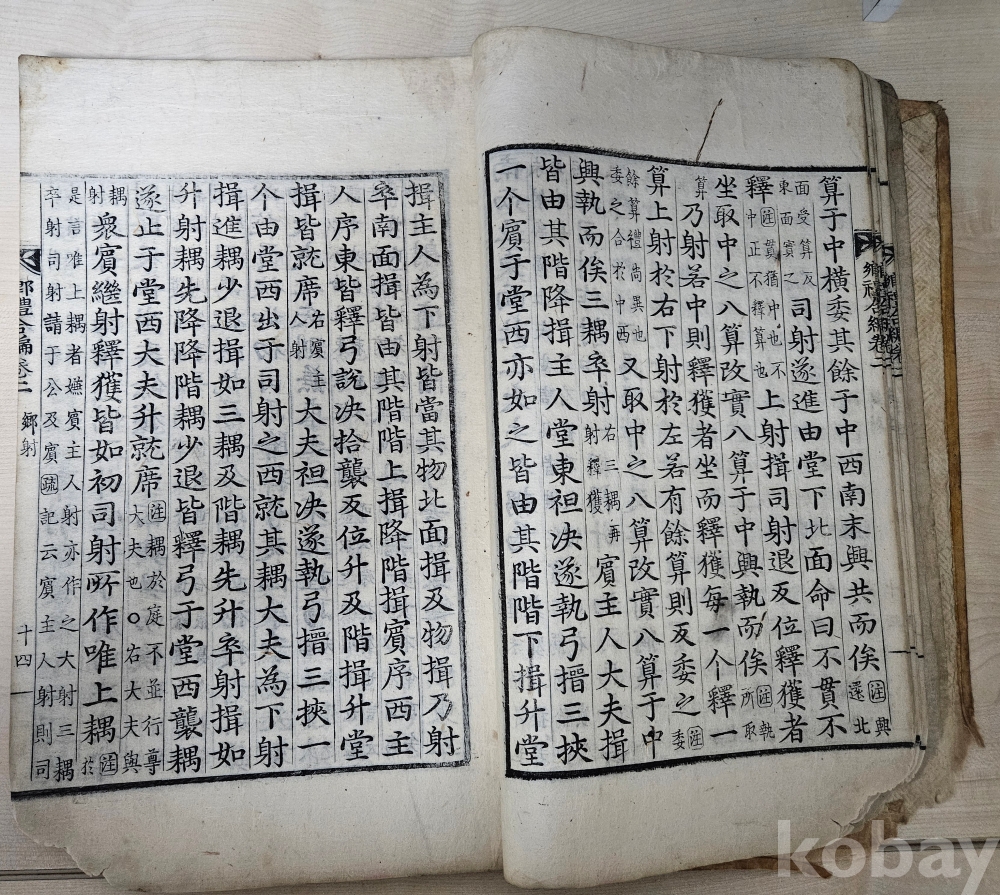 鄉禮合編卷二
算于中橫委其餘于中西南末興共而俟註興還北
面受算反東面實之司射遂進由堂下北面命曰不貫不
釋註貫猶中也不中正不釋算也上射揖司射退反位釋獲者
坐取中之八算改實八算于中興執而俟註執所取
算乃射若中則釋獲者坐而釋獲每一个釋一
算上射於右下射於左若有餘算則反委之註委
餘算禮尚異也委之合於中西又取中之八算改實八算于中
興執而俟三耦卒射右三耦再射釋獲賓主人大夫揖
皆由其階降揖主人堂東袒決遂執弓搢三挾
一个賓于堂西亦如之皆由其階階下揖升堂
揖主人為下射皆當其物北面揖及物揖乃射
卒南面揖皆由其階階上揖降階揖賓序西主
人序東皆釋弓說決拾襲反位升及階揖升堂
揖皆就席右賓主人射大夫袒決遂執弓搢三挾一
个由堂西出于司射之西就其耦大夫為下射
揖進耦少退揖如三耦及階耦先升卒射揖如
升射耦先降降階耦少退皆釋弓于堂西襲耦
遂止于堂西大夫升就席註耦於庭不並行尊大夫也○右大夫與
耦射衆賓繼射釋獲皆如初司射所作唯上耦註於
是言唯上耦者嫌賓主人射亦作之大射三耦
卒射司射請于公及賓疏記云賓主人射則司
鄉禮合編卷二 鄉射 十四
kobay